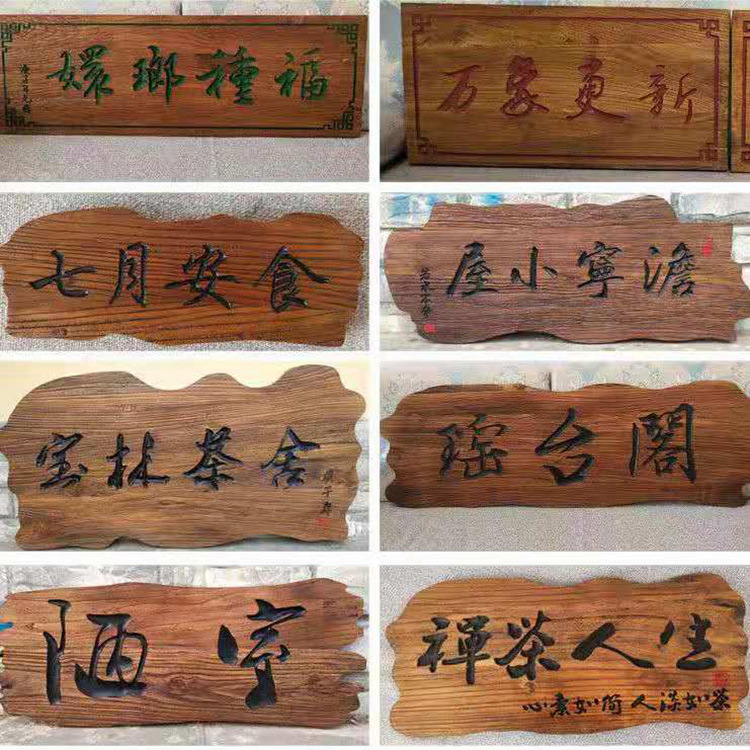 福種瑯嬛
万象更新
七月安食
澹寧小屋
宝林茶舍
瑶台閣
陋室
禪茶人生
心素如简 人淡如茶